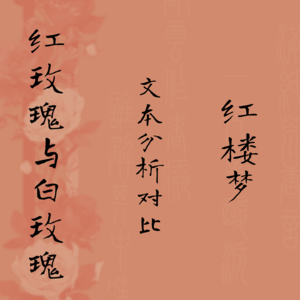 红楼梦
文本分析对比
红玫瑰与白玫瑰